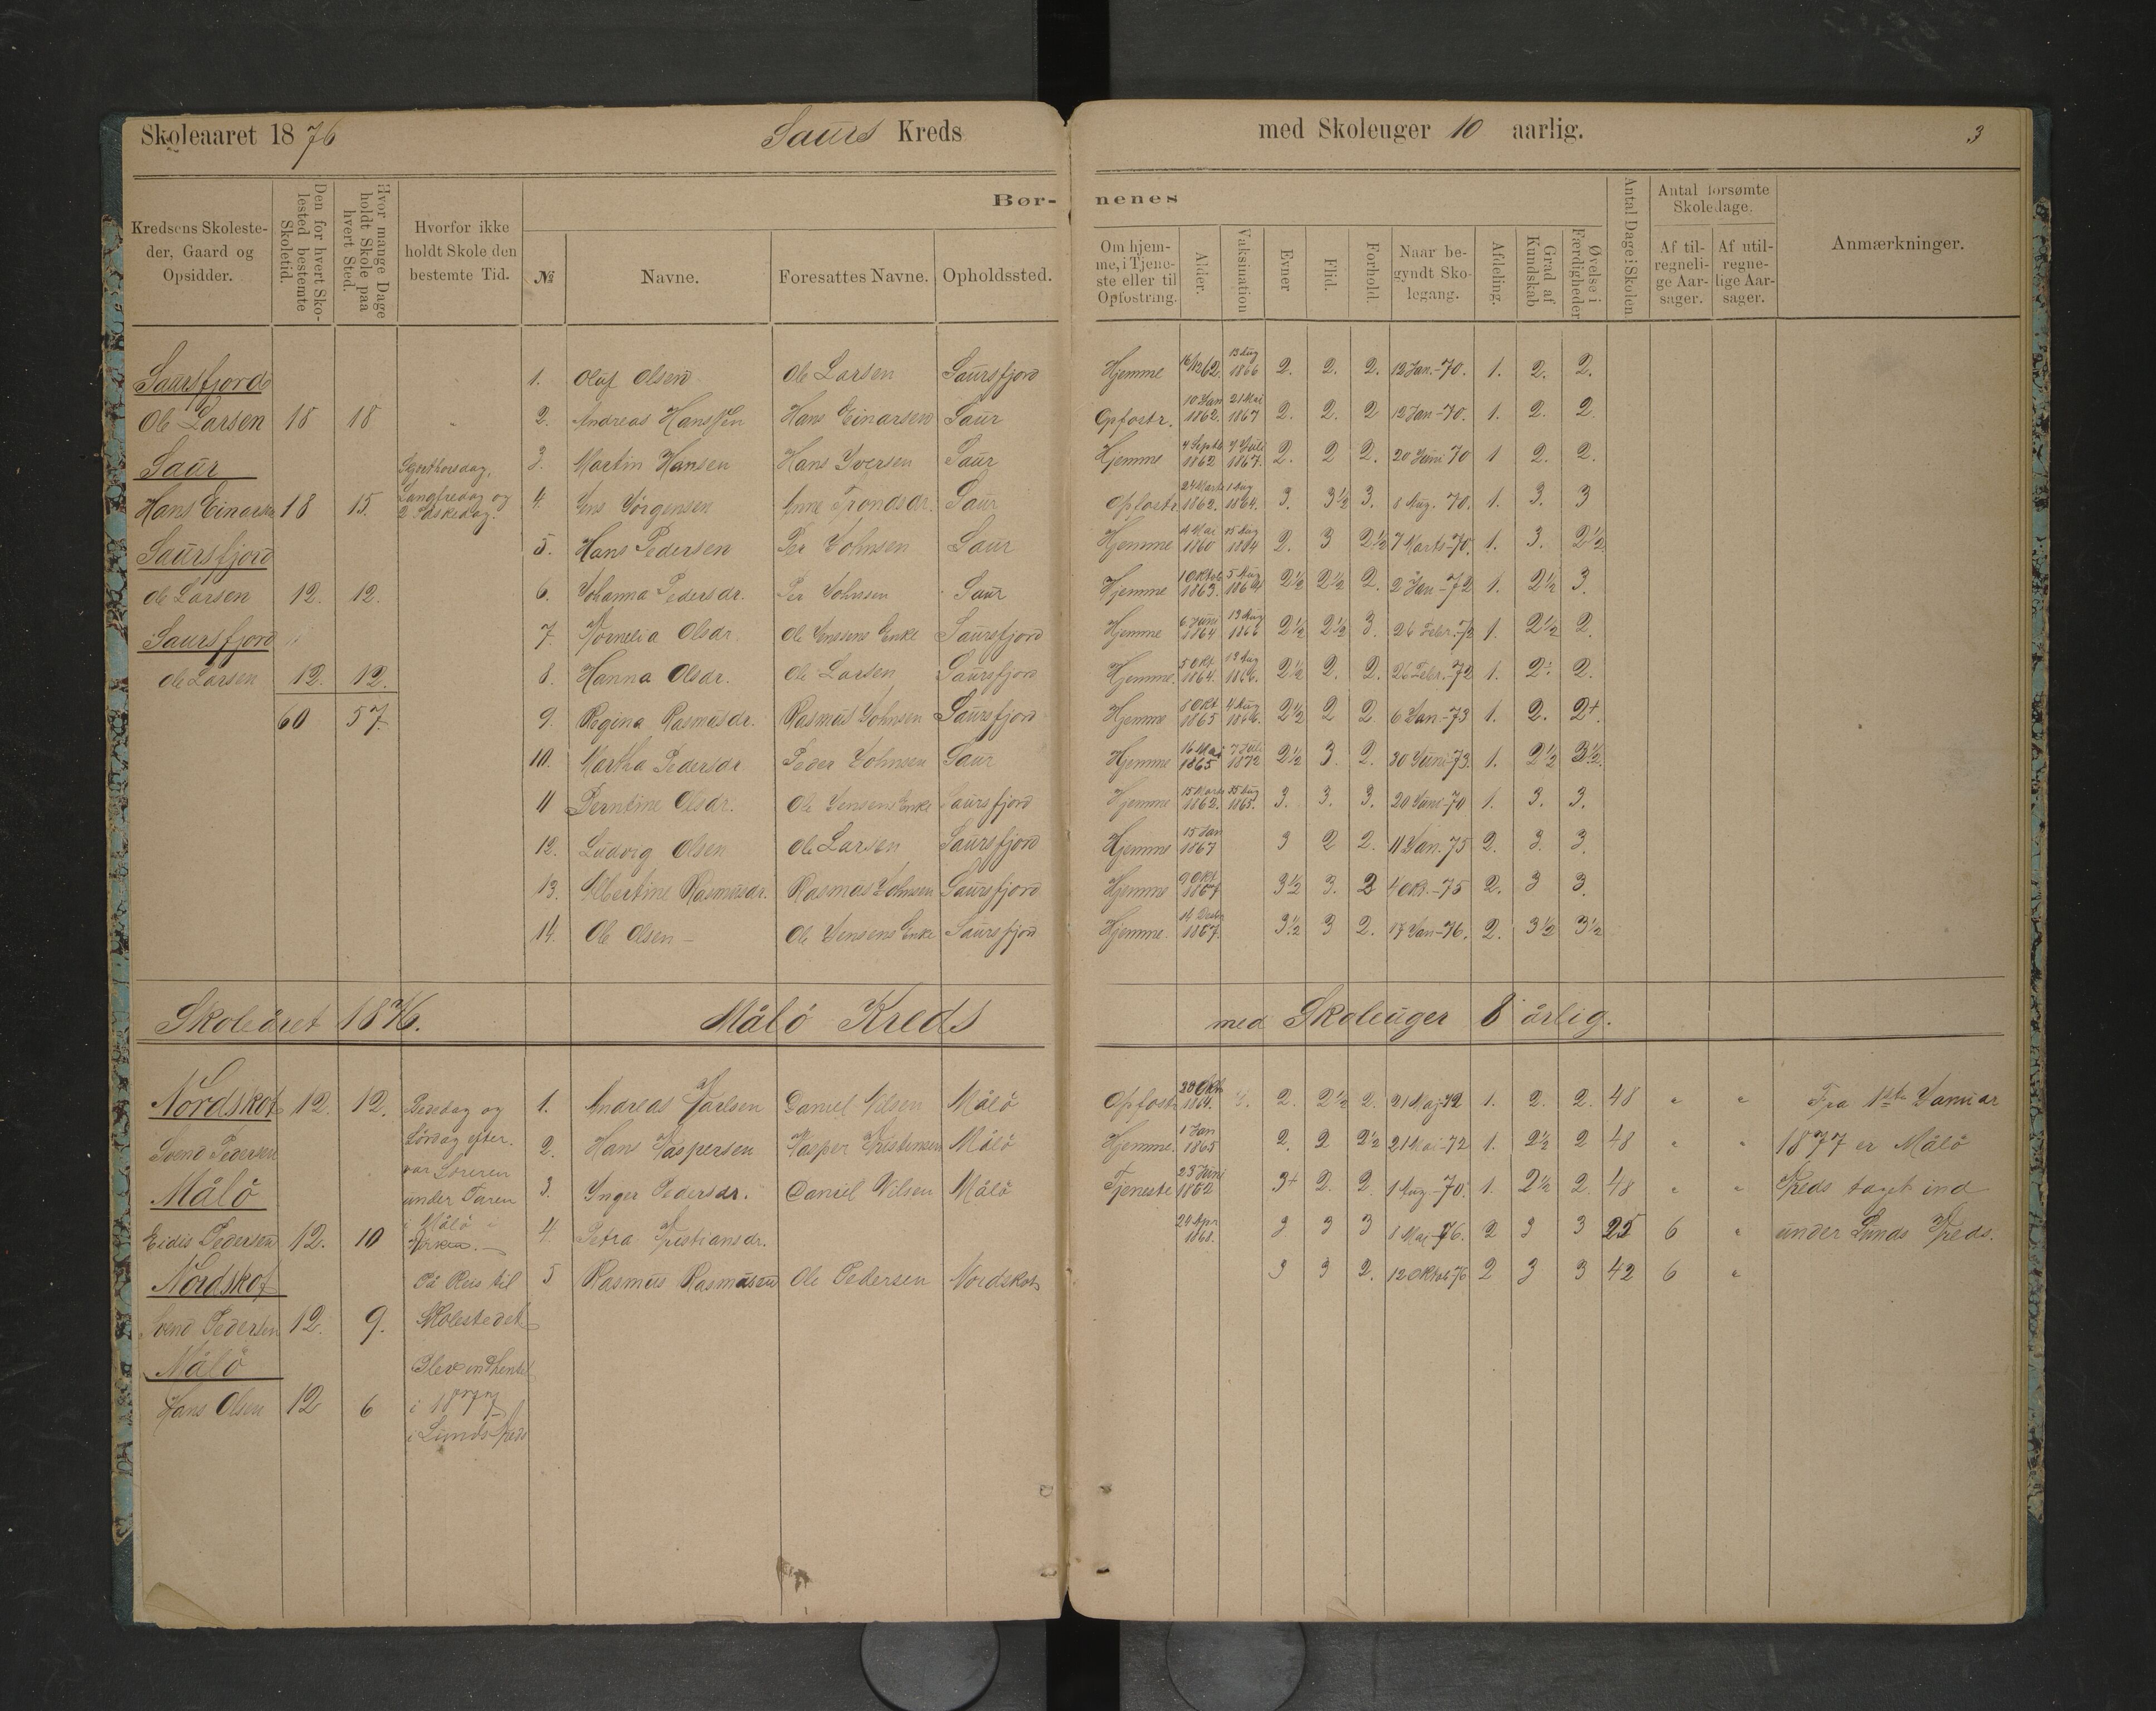 Skoleaaret 1876 Saurs Kreds med Skoleuger 10 aarlig. 3
Kredsens Skolesteder, Gaard og Opsidder.
Den for hvert Skolested bestemte Skoletid.
Hvor mange Dage holdt Skole paa hvert Sted.
Hvorfor ikke holdt Skole den bestemte Tid.
Børnenes
№ Navne. Foresattes Navne. Opholdssted.
Om hjemme, i Tjeneste eller til Opfostring.
Alder. Vaksination Evner Flid. Forhold.
Naar begyndt Skolegang.
Afdeling. Grad af Kundskab Øvelse i Færdigheder
Antal Dage i Skolen
Antal forsømte Skoledage.
Af tilregnelige Aarsager. Af utilregnelige Aarsager.
Anmærkninger.
Saursfjord
Ole Larsen 18 18
Saur
Skjærthorsdag,
Langfredag og
2 Påskedag.
Hans Einarsen 18 15.
Saursfjord
Ole Larsen 12. 12.
Saursfjord
Ole Larsen 12. 12.
60 57.
1. Oluf Olsen Ole Larsen Saursfjord Hjemme 16/12 62. 13 Aug 1866 2. 2. 2. 12 Jan.-70. 1. 2. 2.
2. Andreas Hanssen Hans Einarsen Saur Opfostr. 10 Jan 1862. 21 Mai 1867 2. 2. 2 12 Jan-70. 1. 2. 2
3. Martin Hansen Hans Iversen Saur Hjemme 4 Septb 1862 7 Juli 1867. 2. 2 2. 20 Juni 70 1 2. 2.
4. Jens Jörgensen Anne Trondsdr. Saur Opfostr. 24 Marts 1862. 1 Aug 1864. 3. 3½ 3. 8 Aug. 70. 1. 3. 3
5. Hans Pedersen Per Johnsen Saur Hjemme 4 Mai 1860 15 Aug 1864 2. 3 2½ 7 Marts-70. 1. 3. 2½
6. Johanna Pedersdr. Per Johnsen Saur Hjemme 1 Oktob 1863. 5 Aug 1864 2½ 2½ 2. 2 Jan-72 1. 2½ 3.
7. Kornelia Olsdr. Ole Jensens Enke Saursfjord Hjemme 6 Juni 1864 13 Aug 1866 2½ 2½ 3. 26 Febr.-72 1. 2½ 2.
8. Hanna Olsdr. Ole Larsen Saursfjord Hjemme. 5 Okt. 1864. 13 Aug 1866. 2½ 2. 2. 26 Febr.-72 1. 2. 2.
9. Regina Rasmusdr. Rasmus Johnsen Saursfjord Hjemme 8 Okt 1865 4 Aug 1866. 2½ 2 2 6 Jan-73 1. 2. 2+.
10. Martha Pedersdr Peder Johnsen Saur Hjemme 16 Mai 1865 7 Juli 1872 2½ 3. 2. 30 Juni-73. 1. 2½ 3½.
11 Perntine Olsdr. Ole Jensens Enke Saursfjord Hjemme 15 Marts 1862. 25 Aug 1865. 3. 3. 3. 20 Juni-70 1. 3. 3.
12. Ludvig Olsen Ole Larsen Saursfjord Hjemme 15 Jan 1867 3 2 2. 11 Jan. 75 2. 3. 3.
13. Albertine Rasmusdr. Rasmus Johnsen Saursfjord Hjemme 9 Okt 1867 3½ 3. 2 4 Okt.-75 2. 3 3.
14. Ole Olsen – Ole Jensens Enke Saursfjord Hjemme. 14 Decbr 1867. 3½ 3 2. 17 Jan-76. 2. 3½ 3½
Skoleåret 1876. Målö Kreds med Skoleuger 8 årlig.
Nordskot 12. 12.
Svend Pedersen
Målö
Eidis Pedersen 12. 10
Nordskot
Svend Pedersen 12. 9.
Målö
Hans Olsen 12 6
Bededag og
Lördag efter.
var Læreren
under Turen
i Målö
På Reis til
Skolestedet
Blev indhentet
i 1877
i Lunds Kreds
1. Andreas Karlsen Daniel Nilsen Målö Opfostr. 20 Okt. 1864. 2. 2½ 2. 21 Maj-72 1. 2. 2. 48 " "
2. Hans Kaspersen Kasper Kristensen Målö Hjemme. 1 Jan 1865 2. 2 2½ 21 Mai-72 1. 2½ 2 48 " "
3. Inger Pedersdr. Daniel Nilsen Målö Tjeneste 23 Juni 1862 3+ 2. 2. 1 Aug.-70. 1. 2½ 2. 48 " "
4. Petra Kristiansdr. 29 Apr 1868. 3 3 3 8 Mai-76. 2 3 3 25 6 "
5 Rasmus Rasmusen Ole Pedersen Nordskot 3 3 2. 12 Oktob-76 2 3 3 42 6 "
Fra 1ste Januar
1877 er Målö
Kreds taget ind
under Lunds Kreds.